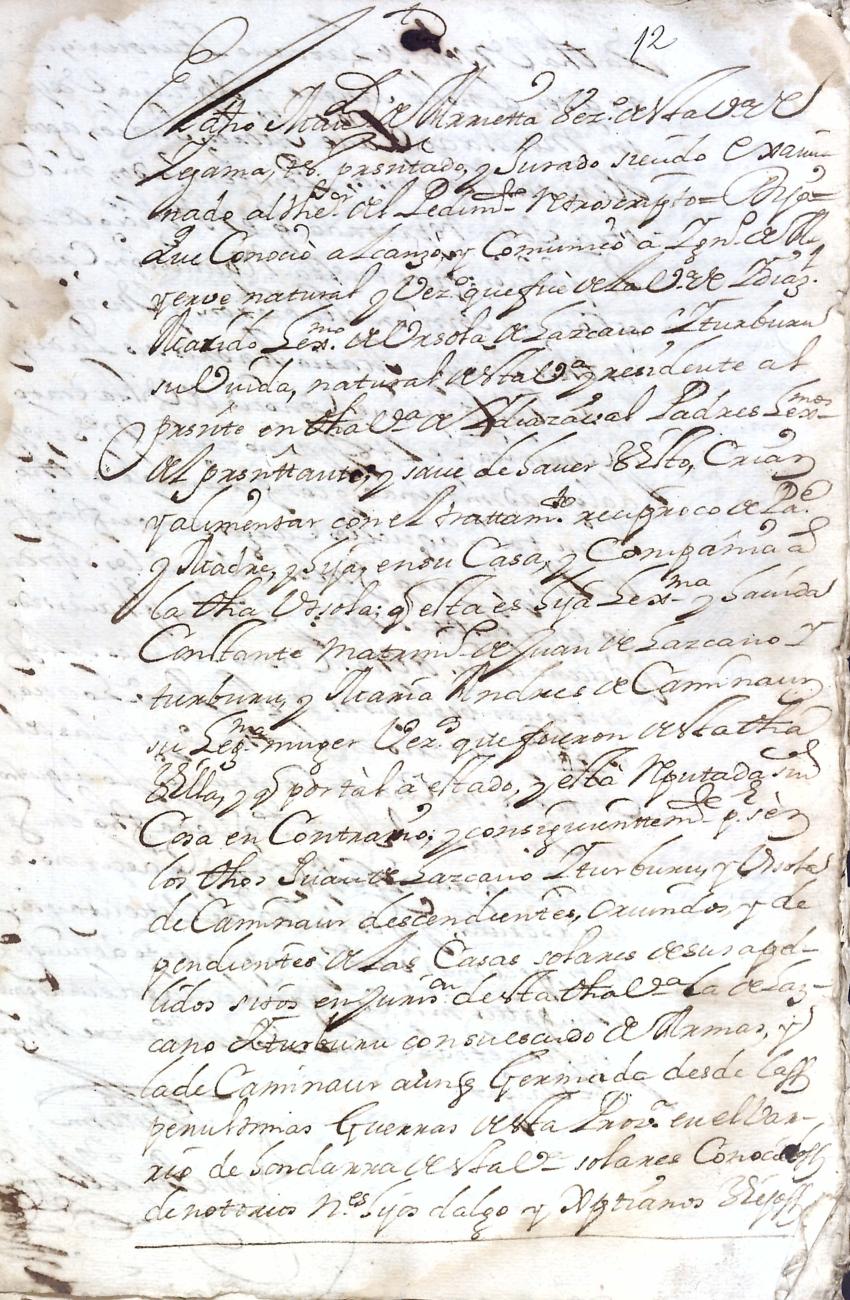 12
El dho de Arrieta Vezº. de esta Vª. de
Zegama, tsº. presentado, y Jurado siendo exami-
nado al thenor del Pedimto. retroescripto = Dijo =
que Conoció alcanzó, y Comunicó à Ygnº. de
yerve natural y Vezº. que fué de la Vª. de Ydiaz.
Marido Lexmo. de Ursola de Lazcano Yturburu
su Viuda, natural de esta Vª. y residente al
presente en dha Vª. de Ydiazaval Padres Lexmos.
del presenttante, y save de haver Visto, Criar
y alimentar con el trattamto. reciproco de Pe.
y Madre, y hija, en su Casa, y Compañia a
la dha Ursola; q esta és hija Lexma. y havida
Constante matrimo. de Juan de Lazcano Y
turburu, y Maria Andres de Caminaur
su Legma. muger Vezs. que fueron de esta dha
Villa, y q por tàl à estado, y està reputada sin
Cosa en Contrario; y consiguientemte. p. sér
los dhos Juan de Lazcano Yturburu, y Ursola
de Caminaur descendientes, oriundos, y de
pendientes de las Casas solares de sus apel-
lidos sitos en Jurison. de esta dha Vª. la de Laz-
cano Yturburu con su escudo de Armas, y
la de Caminaur aunq Yermada desde las
penultimas Guerras de esta Provª. en el Var-
rio de Hondarra de esta Vª. solares Conocidos
de notorios nes. hijos dalgo y Xptianos Viejos